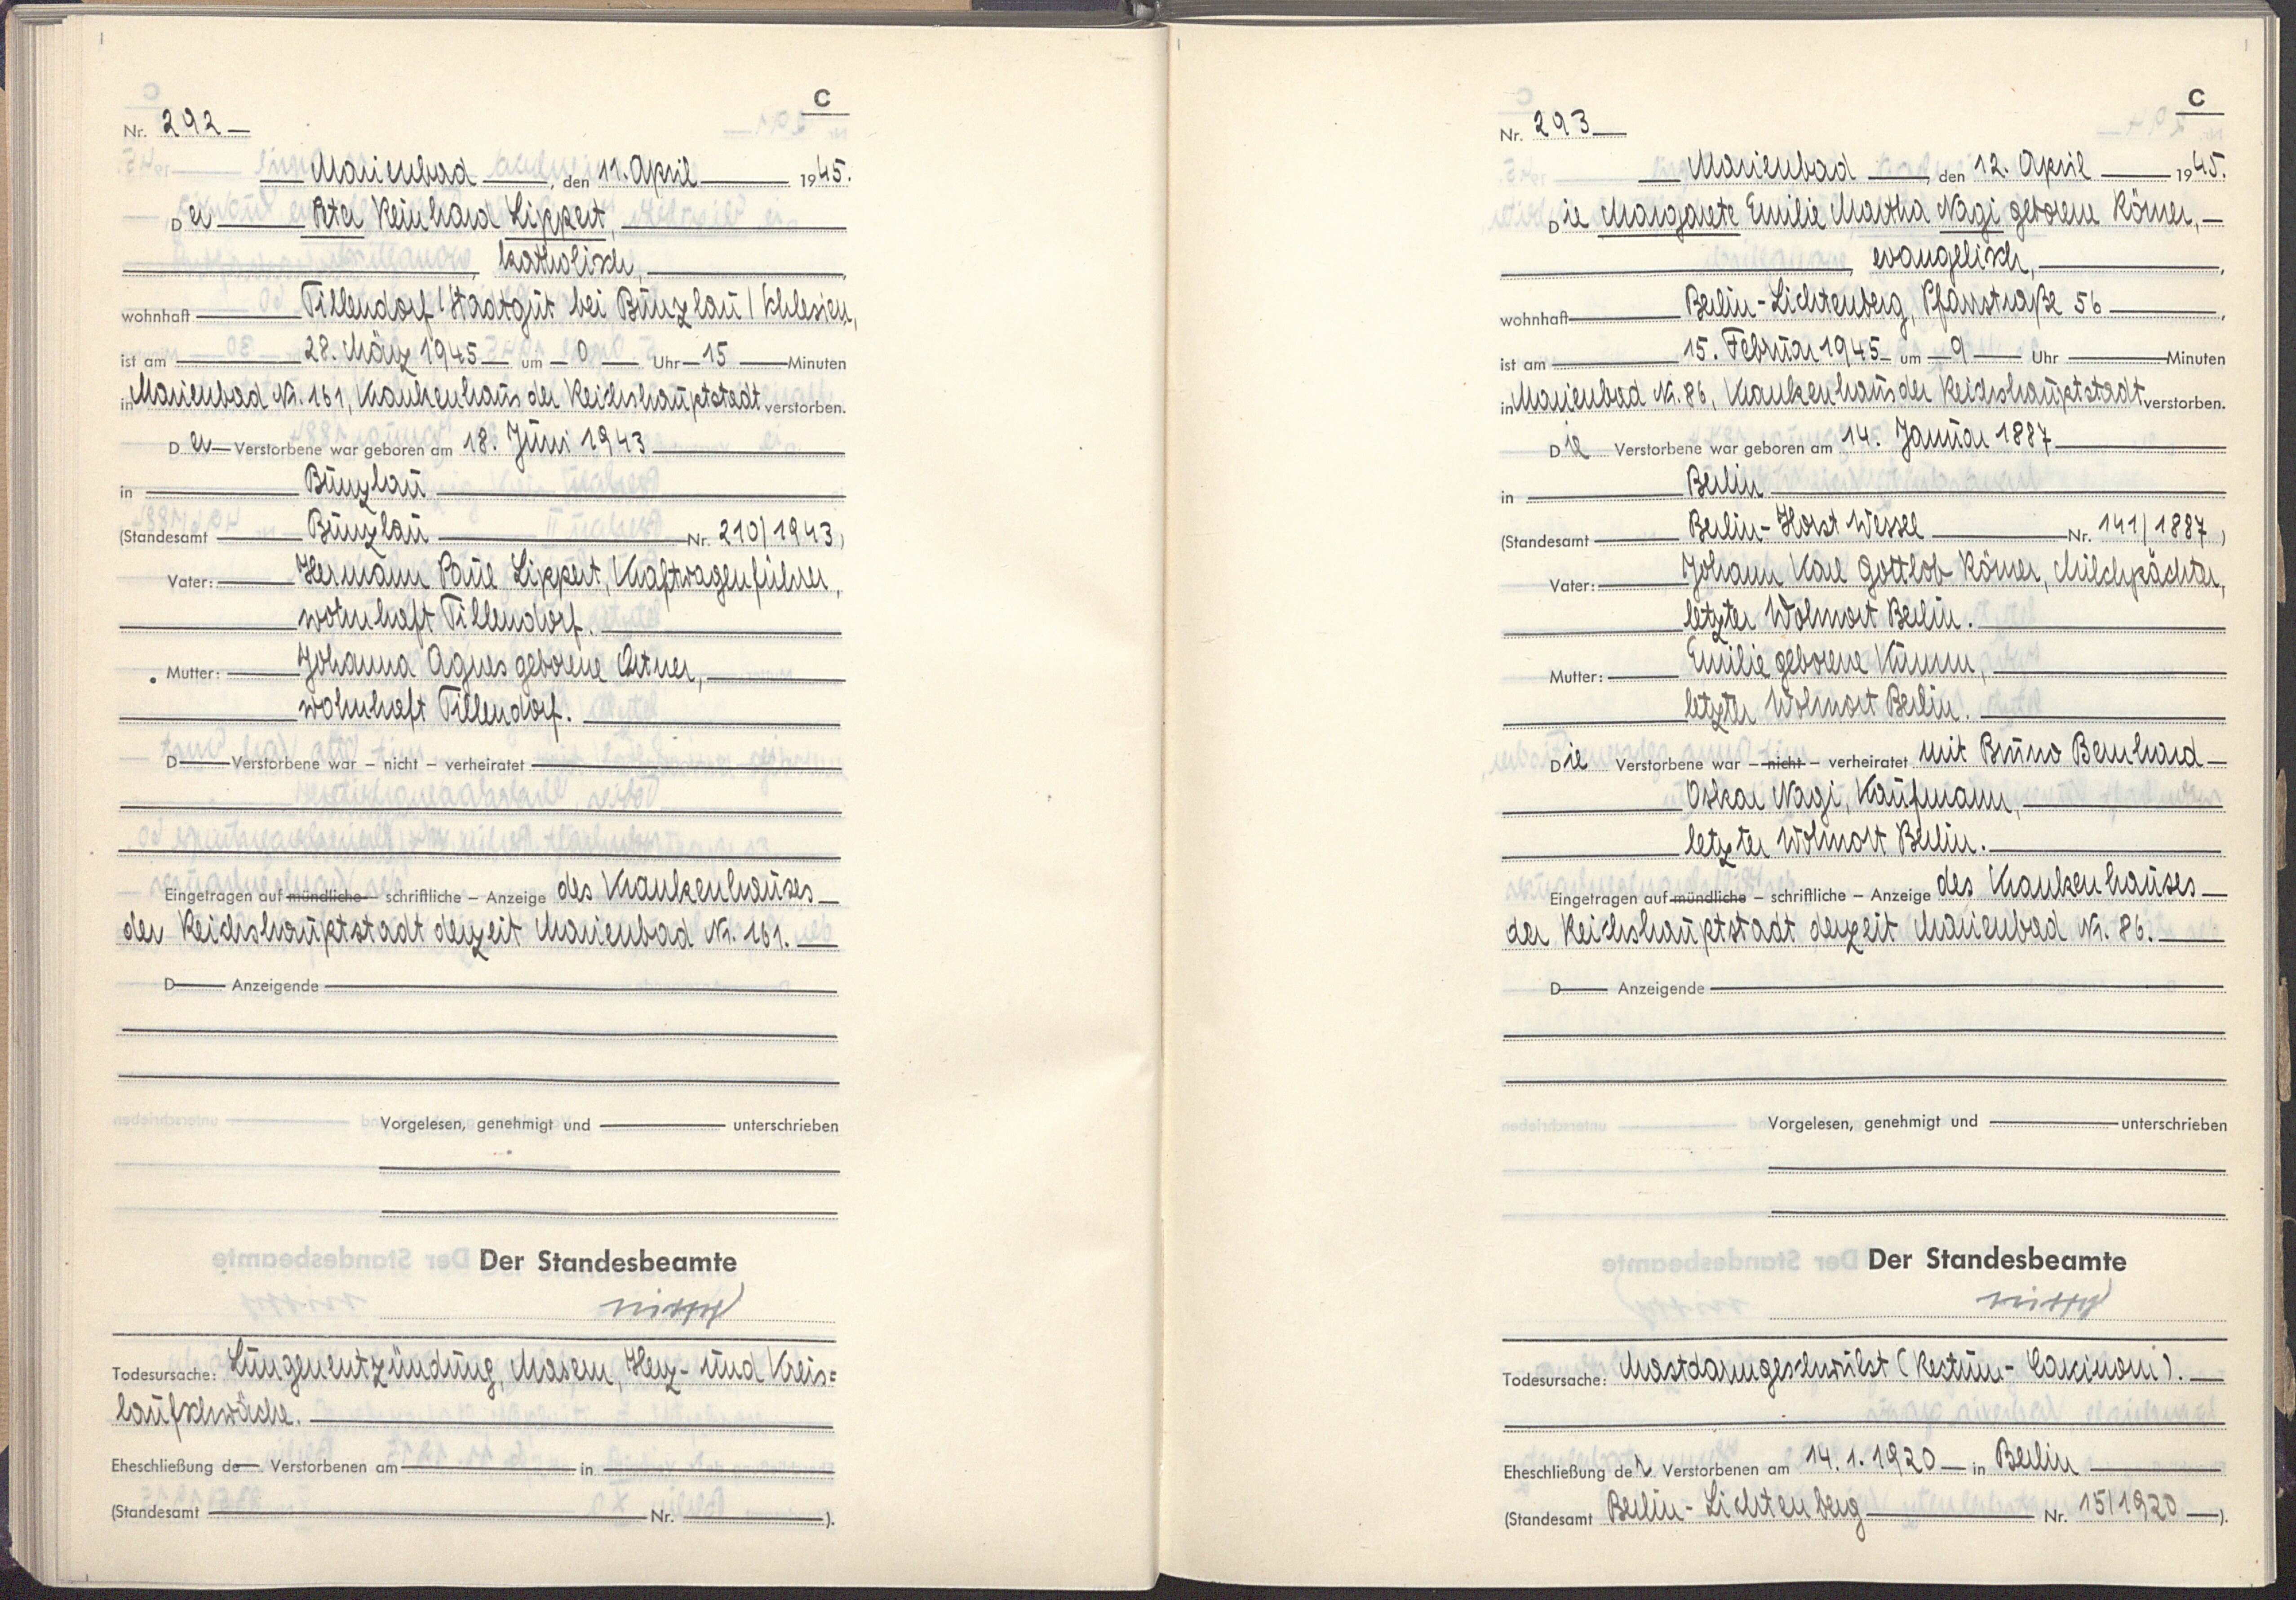 C
Nr. 292
Marienbad, den 11. April 1945.
Der Peter Reinhard Lippert,
, katholisch,
wohnhaft Tillendorf/Stadtgut bei Bunzlau/Schlesien,
ist am 28. März 1945 um 0 Uhr 15 Minuten
in Marienbad Nr. 161, Krankenhaus der Reichshauptstadt verstorben.
Der Verstorbene war geboren am 18. Juni 1943
in Bunzlau
(Standesamt Bunzlau Nr. 210/1943)
Vater: Hermann Paul Lippert, Kraftwagenführer,
wohnhaft Tillendorf.
Mutter: Johanna Agnes geborene
wohnhaft Tillendorf.
D Verstorbene war – nicht – verheiratet
Eingetragen auf mündliche – schriftliche – Anzeige des Krankenhauses
der Reichshauptstadt derzeit Marienbad Nr. 161.
D Anzeigende
Vorgelesen, genehmigt und unterschrieben
Der Standesbeamte
Todesursache: Lungenentzündung, Masern, Herz- und Kreis=
laufschwäche.
Eheschließung de Verstorbenen am in
(Standesamt Nr. ).
C
Nr. 293
Marienbad, den 12. April 1945.
Die Margarete Emilie Martha Nagi geborene Körner,
, evangelisch,
wohnhaft Berlin-Lichtenberg, Pfarrstraße 56,
ist am 15. Februar 1945 um 9 Uhr Minuten
in Marienbad Nr. 86, Krankenhaus der Reichshauptstadt verstorben.
Die Verstorbene war geboren am 14. Januar 1887
in Berlin
(Standesamt Berlin-Horst Wessel Nr. 141/1887)
Vater: Johann Karl Gottlob Körner, Milchpächter,
letzter Wohnort Berlin.
Mutter: Emilie geborene Kumm,
letzter Wohnort Berlin.
Die Verstorbene war – nicht – verheiratet mit Bruno Bernhard
Oskar Nagi, Kaufmann,
letzter Wohnort Berlin.
Eingetragen auf mündliche – schriftliche – Anzeige des Krankenhauses
der Reichshauptstadt derzeit Marienbad Nr. 86.
D Anzeigende
Vorgelesen, genehmigt und unterschrieben
Der Standesbeamte
Todesursache: Mastdarmgeschwulst (Rectum-Carcinom).
Eheschließung der Verstorbenen am 14.1.1920 in Berlin
(Standesamt Berlin-Lichtenberg Nr. 15/1920).